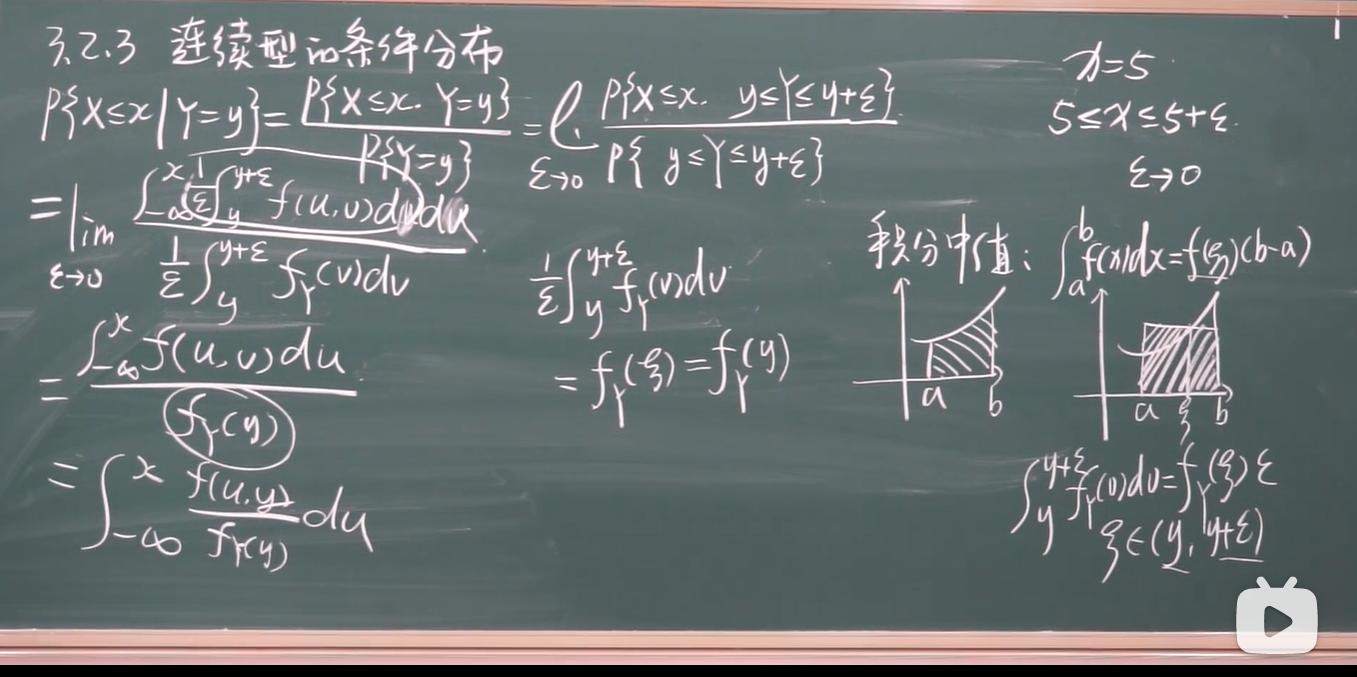 3.2.3 连续型的条件分布
P{X≤x|Y=y}=P{X≤x. Y=y}/P{Y=y}=lim ε→0 P{X≤x. y≤Y≤y+ε}/P{y≤Y≤y+ε}
=lim ε→0 ∫_{-∞}^{x} 1/ε ∫_{y}^{y+ε} f(u,v)dvdu / 1/ε ∫_{y}^{y+ε} f_Y(v)dv
=∫_{-∞}^{x} f(u,v)du / f_Y(y)
=∫_{-∞}^{x} f(u.y)/f_Y(y) du
1/ε ∫_{y}^{y+ε} f_Y(v)dv
=f_Y(ξ)=f_Y(y)
x=5
5≤x≤5+ε.
ε→0
积分中值: ∫_{a}^{b} f(x)dx=f(ξ)(b-a)
a b
a ξ b
∫_{y}^{y+ε} f_Y(v)dv=f_Y(ξ)ε
ξ∈(y, y+ε)